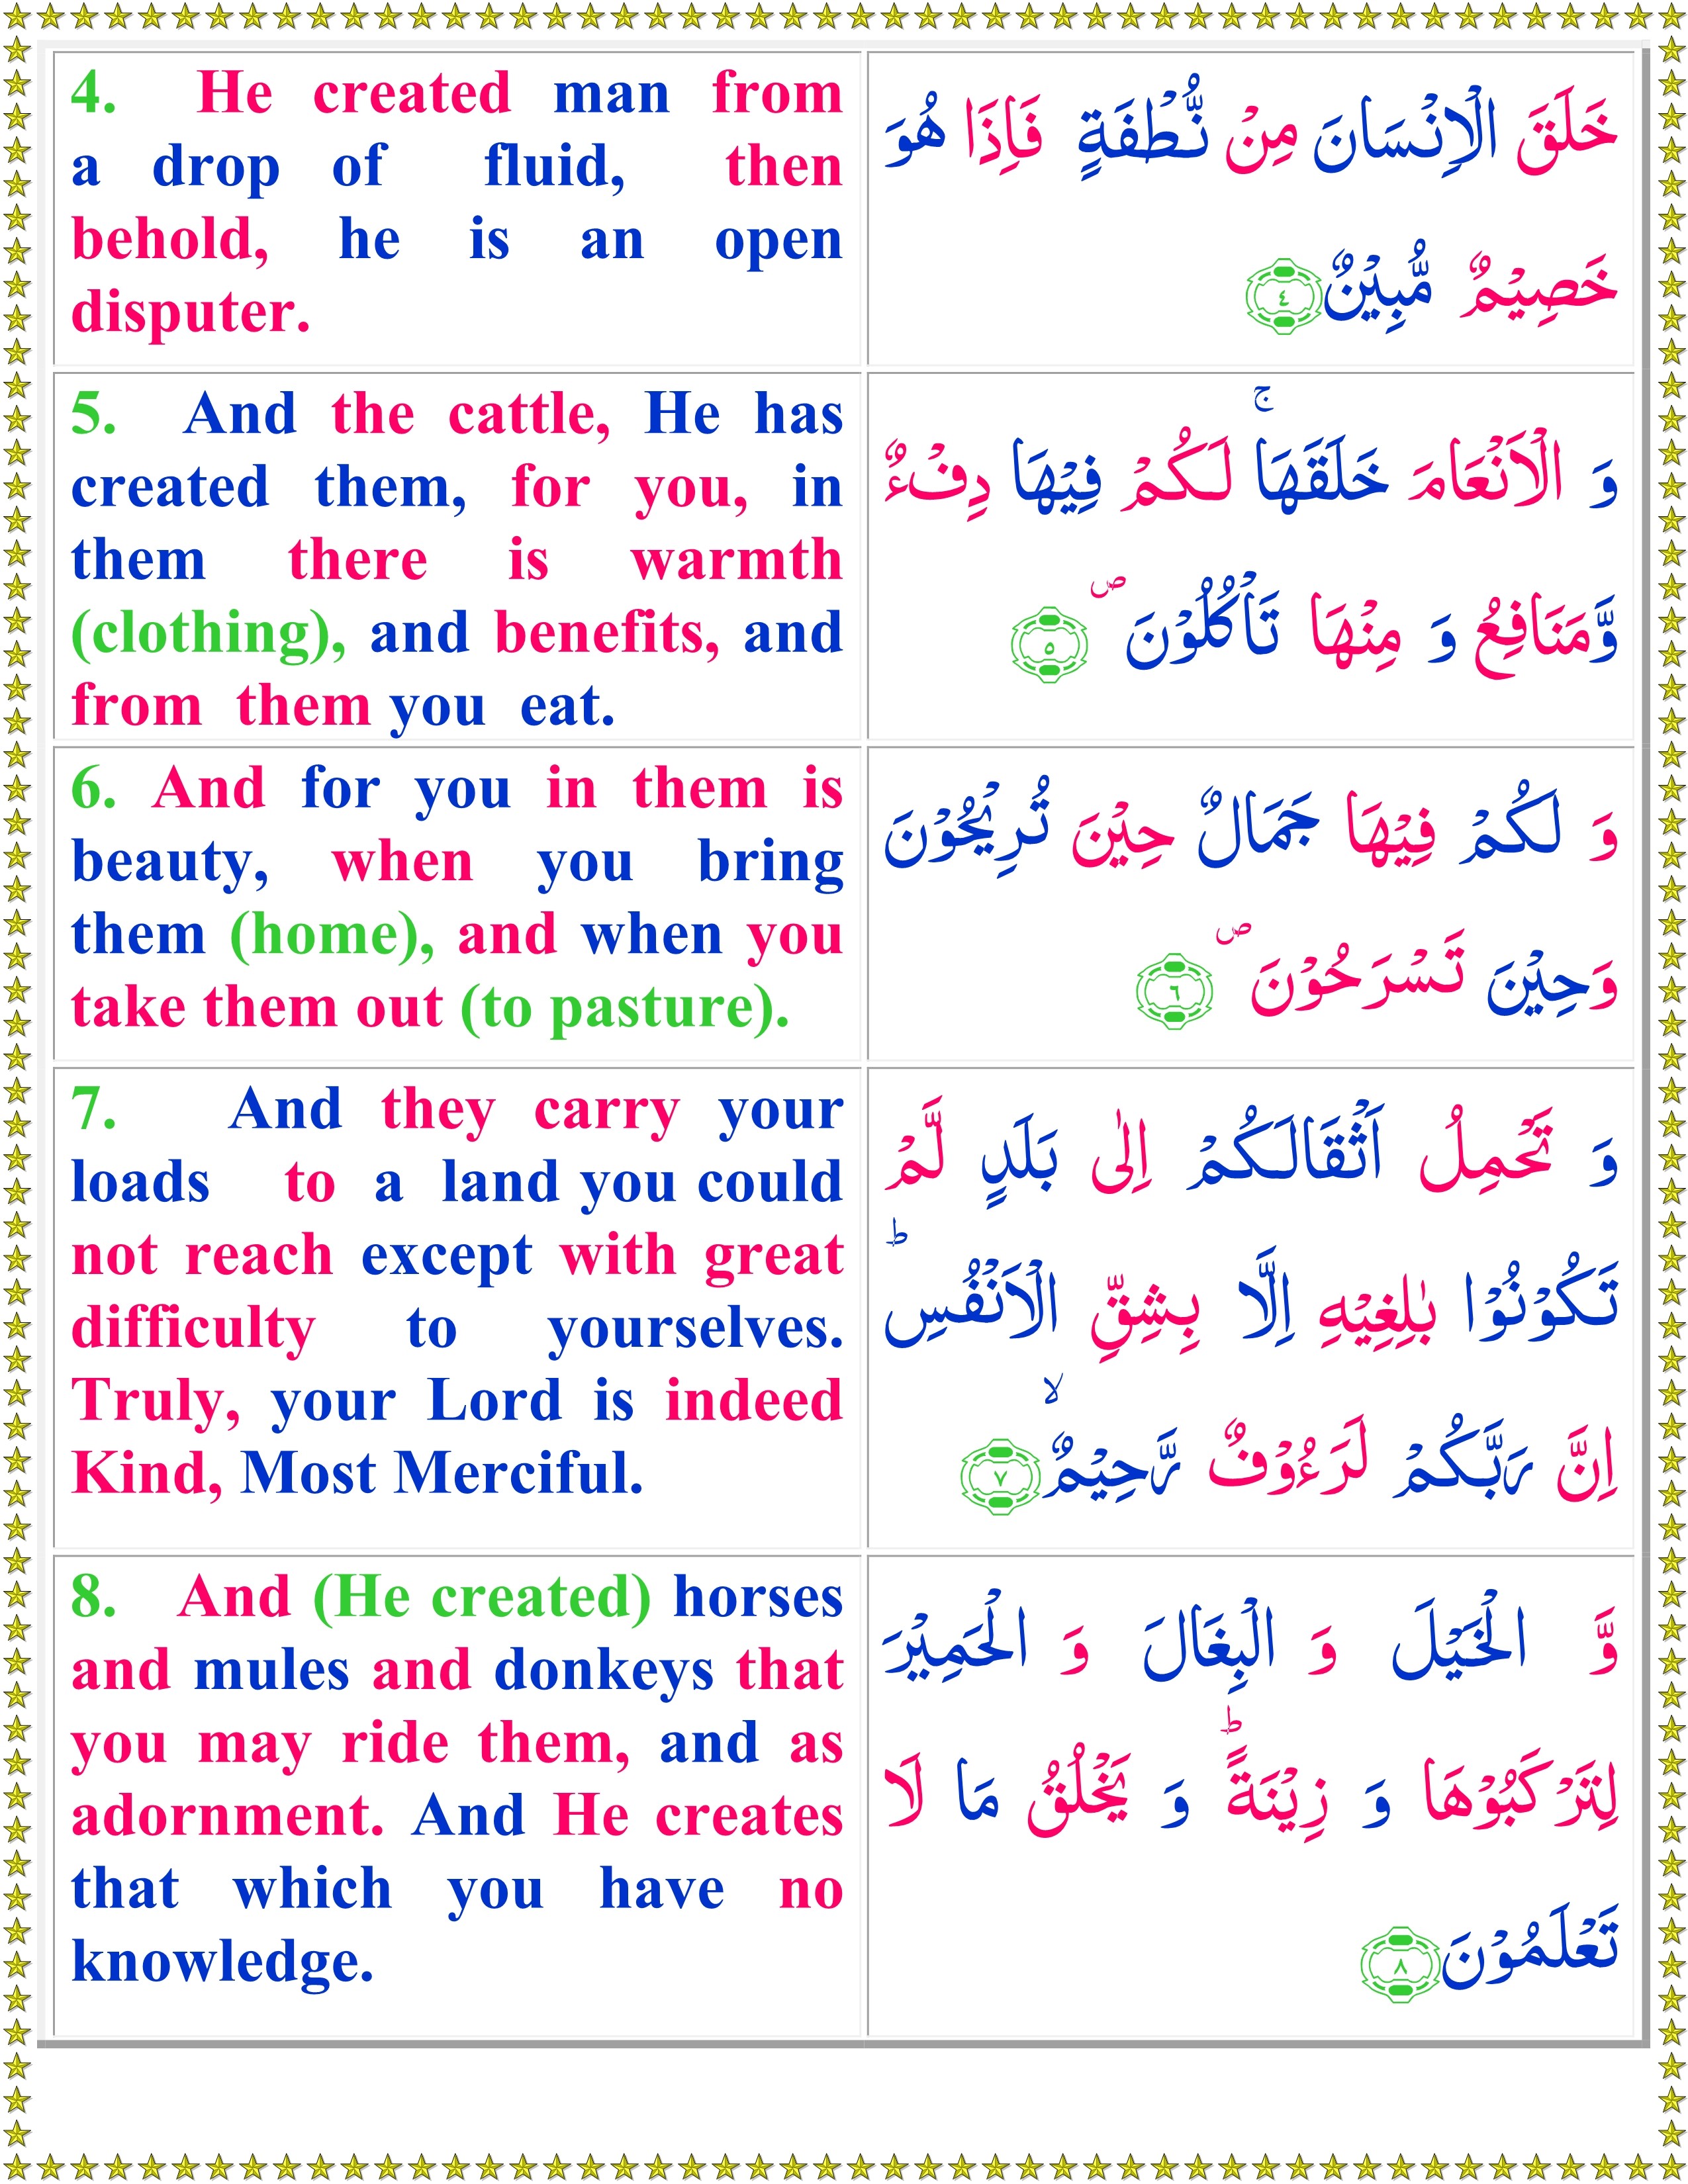 4. He created man from
a drop of fluid, then
behold, he is an open
disputer.
خَلَقَ الْاِنْسَانَ مِنْ نُّطْفَةٍ فَاِذَا هُوَ
خَصِيْمٌ مُّبِيْنٌ ٤
5. And the cattle, He has
created them, for you, in
them there is warmth
(clothing), and benefits, and
from them you eat.
وَ الْاَنْعَامَ خَلَقَهَا ۚ لَكُمْ فِيْهَا دِفْءٌ
وَّمَنَافِعُ وَ مِنْهَا تَاْكُلُوْنَ ۪ ٥
6. And for you in them is
beauty, when you bring
them (home), and when you
take them out (to pasture).
وَ لَكُمْ فِيْهَا جَمَالٌ حِيْنَ تُرِيْحُوْنَ
وَحِيْنَ تَسْرَحُوْنَ ۪ ٦
7. And they carry your
loads to a land you could
not reach except with great
difficulty to yourselves.
Truly, your Lord is indeed
Kind, Most Merciful.
وَ تَحْمِلُ اَثْقَالَكُمْ اِلٰى بَلَدٍ لَّمْ
تَكُوْنُوْا بٰلِغِيْهِ اِلَّا بِشِقِّ الْاَنْفُسِ ؕ
اِنَّ رَبَّكُمْ لَرَءُوْفٌ رَّحِيْمٌ ۙ ٧
8. And (He created) horses
and mules and donkeys that
you may ride them, and as
adornment. And He creates
that which you have no
knowledge.
وَّ الْخَيْلَ وَ الْبِغَالَ وَ الْحَمِيْرَ
لِتَرْكَبُوْهَا وَ زِيْنَةً ؕ وَ يَخْلُقُ مَا لَا
تَعْلَمُوْنَ ٨